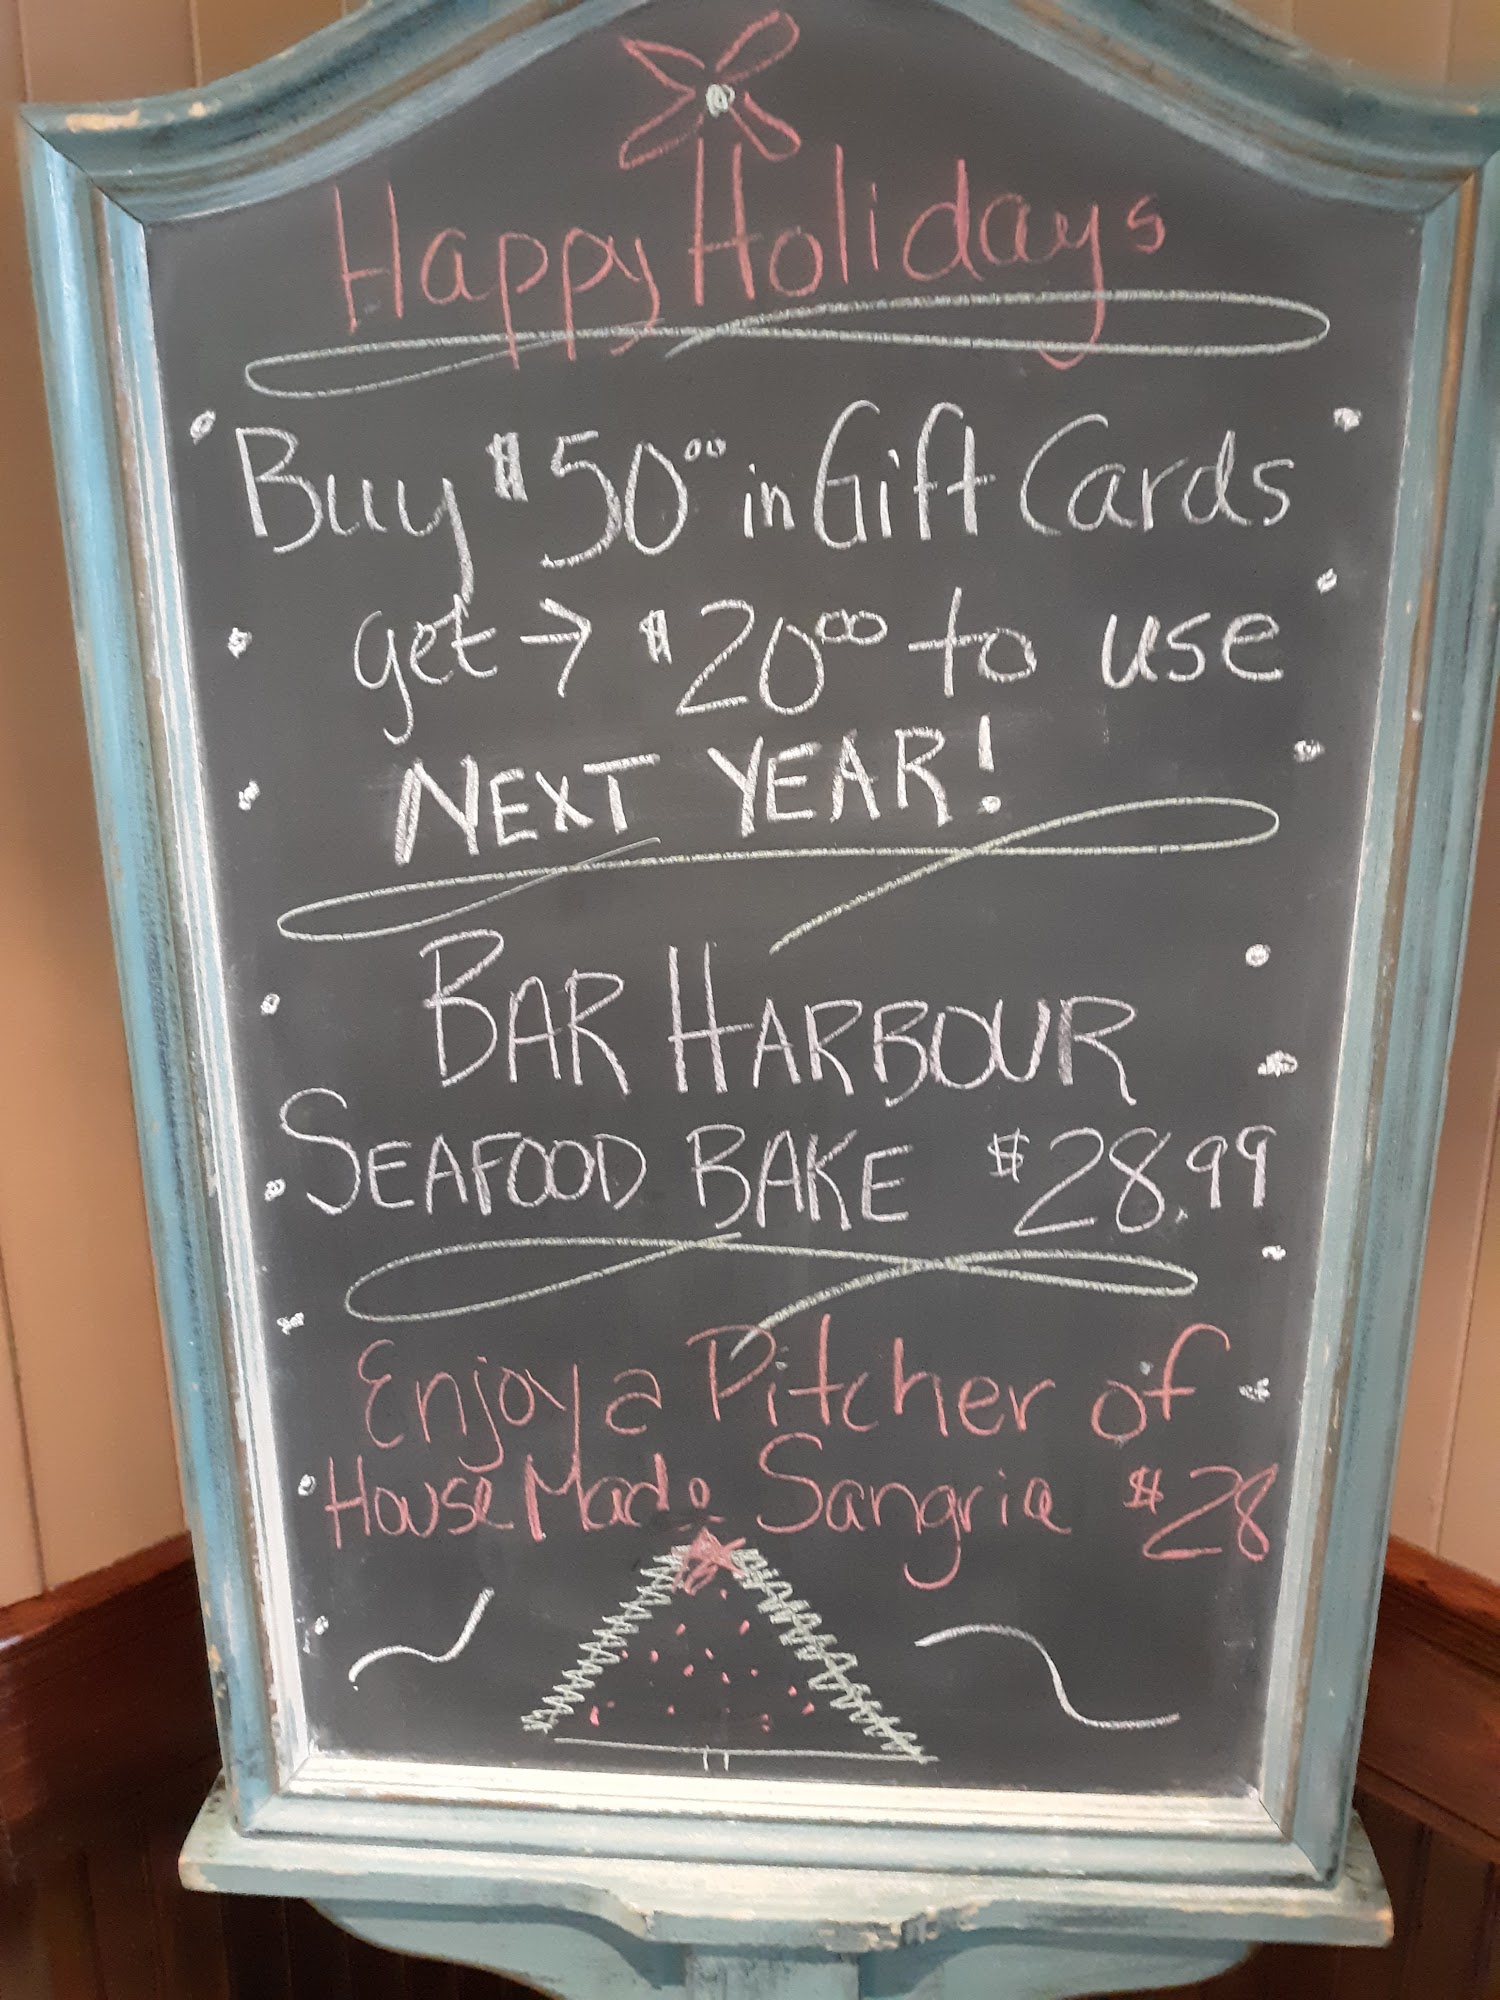 Happy Holidays
Buy $50.00 in Gift Cards
get → $20.00 to use
NEXT YEAR!
BAR HARBOUR
SEAFOOD BAKE $28.99
Enjoy a Pitcher of
House Made Sangria $28